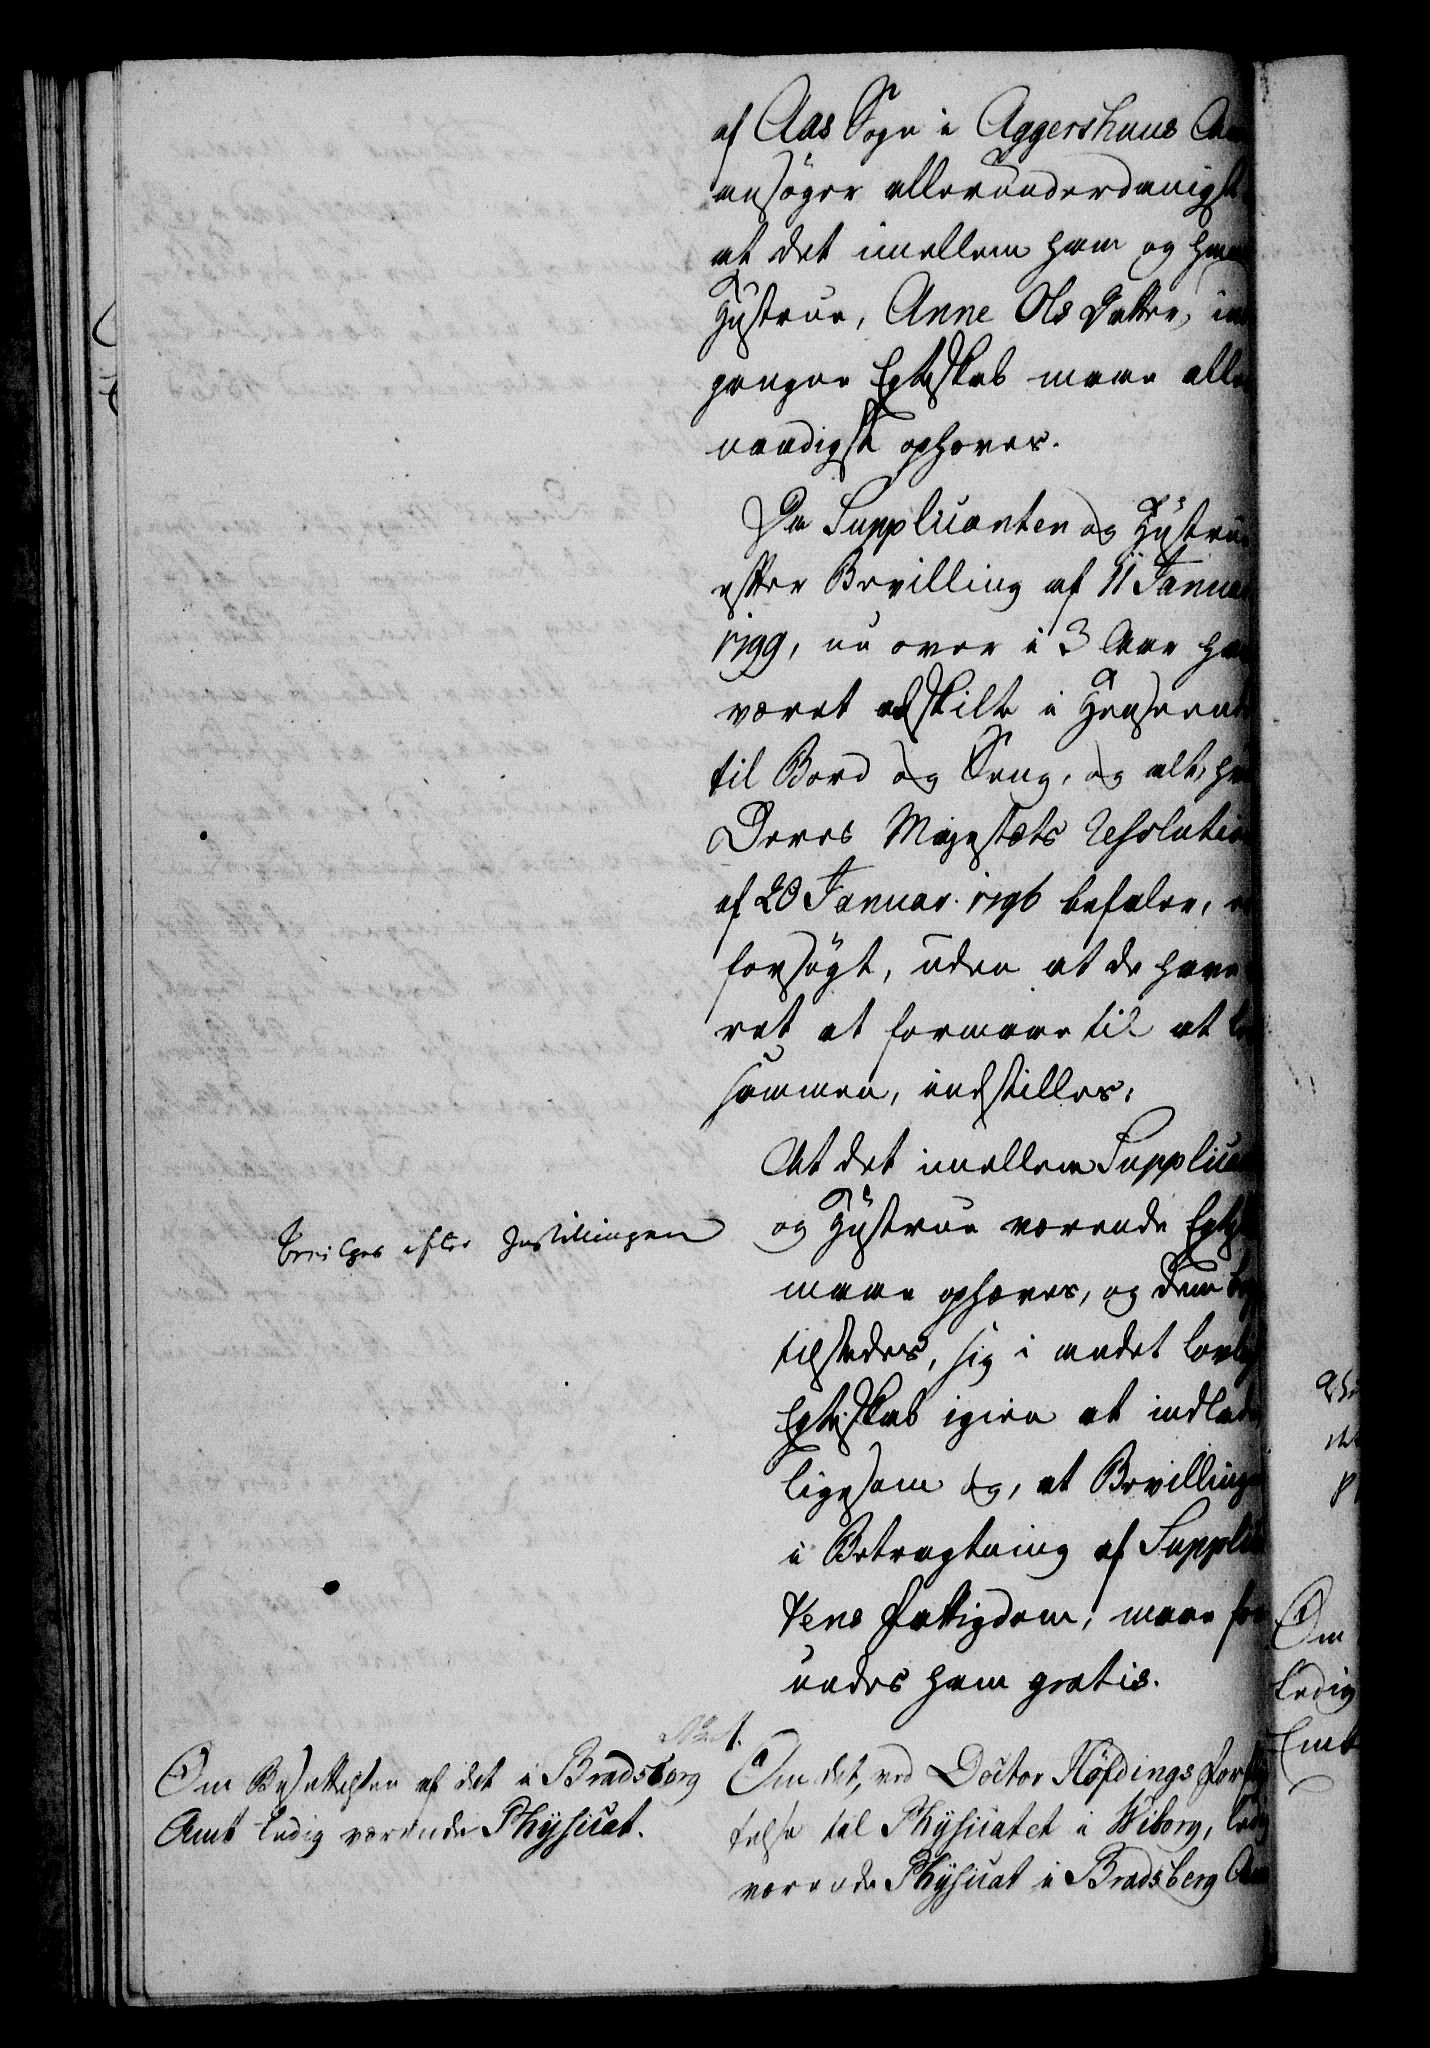 af Aas Sogn i Aggershuus
ansøger allerunderdanigst
at det imellem ham og
Hustrue, Anne Ols Datter, ind
gangne Egteskab maae aller
naadigst ophæves.
Da Supplicanten og Hustrue
efter Bevilling af 11 Januar
1799, nu over i 3 Aar
været adskilte i Henseende
til Bord og Seng, og alt,
Deres Majestæts Resolution
af 20 Januar 1796 befaler,
forsøgt, uden at de have
ret at formaae til at
sammen, indstilles:
At det imellem Supplicanten
og Hustrue værende Egteskab
Bevilges efter Instillingen
maae ophæves, og dem
tilstædes, sig i andet lovligt
Egteskab igien at indlade
ligesom og, at Bevillingen
i Betragtning af Supplican
tens Fattigdom, maae for
undes ham gratis.
Om Besættelsen af det i Bradsberg
Amt ledig værende Physicat.
Om det, ved Doctor Høfdings Forflyt
telse til Physicatet i Wiborg, ledig
værende Physicat i Bradsberg Amt
Om
ledig
Emb